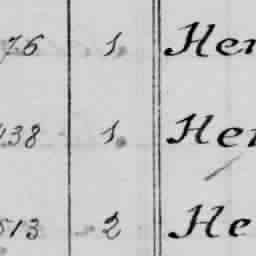 76 1 Her
138 1 Her
513 2 He